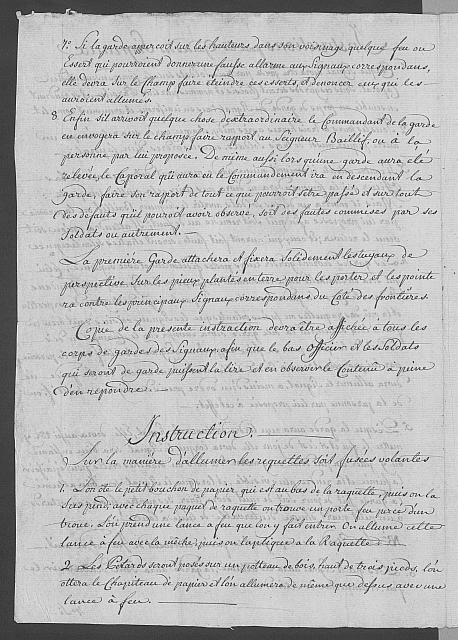 7º Si la garde apercoit sur les hauteurs dans son voisinage quelque feu ou
Essert qui pourroient donner une fausse allarme aux Signaux correspondans,
elle devra sur le Champ faire éteindre ces esserts, et denoncer ceux qui les
auroient allumés.
8. Enfin s'il arrivoit quelque chose d'extraordinaire le Commandant de la garde
en envoyera sur le champ faire rapport au Seigneur Baillif, ou à la
personne par lui proposée. De même aussi lors qu'une garde aura été
relevée, le Caporal qui aura eu le Commandement ira en descendant la
garde, faire son rapport de tout ce qui pourroit s'etre passé et sur tout
des défauts qu'il pouroit avoir observé, soit des fautes commises par ses
Soldats ou autrement.
La première Garde attachera et fixera solidement les tuyaux de
perspective sur les pieux plantés en terre pour les porter et les pointe
ra contre les principaux Signaux correspondans du Coté des frontières.
Copie de la presente instruction devra être affichée à tous les
corps de gardes des Signaux, afin que le bas Officier et les Soldats
qui seront de garde puissent la lire et en observer le Contenu à peine
d'en répondre.
Instruction.
Sur la manière d'allumer les requettes soit fusées volantes
1. L'on ote le petit bouchon de papier qui est au bas de la raquette, puis on la
pend, avec chaque paquet de raquette on trouve un porte feu percé d'un
troue. L'on prend une lance à feu que l'on y fait entrer. On allume cette
lance à feu avec la mêche, puis on l'aplique à la Raquette.
2. Les Petards seront posés sur un potteau de bois, haut de trois pieds, l'on
ottera le Chapiteau de papier et l'on allumera de même que dessus avec une
lance à feu.